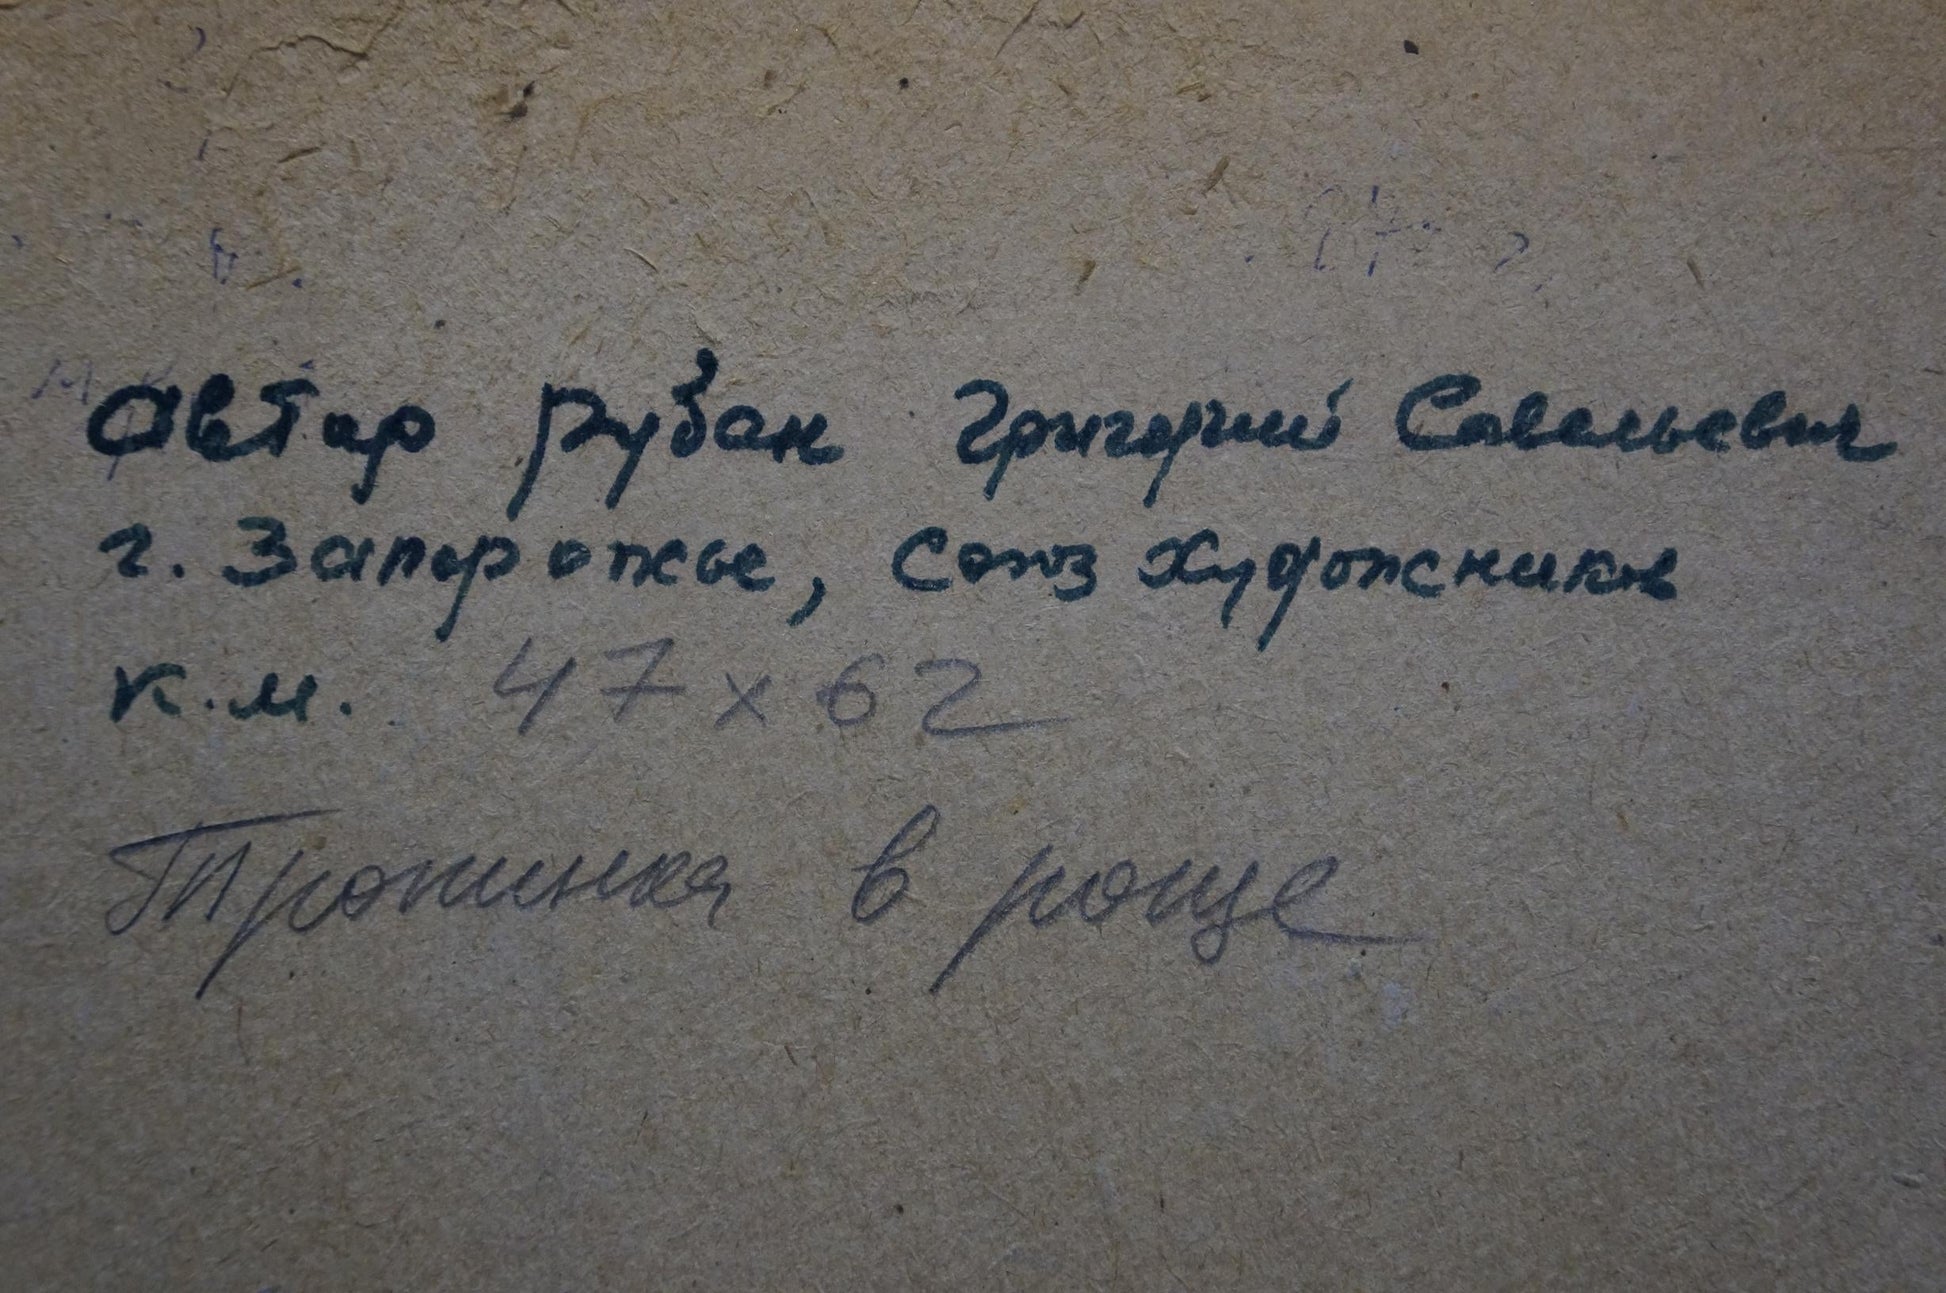 Автор Рубан Григорий Савельевич
г. Запорожье, союз художников
к.м. 47 x 62
Тропинка в роще